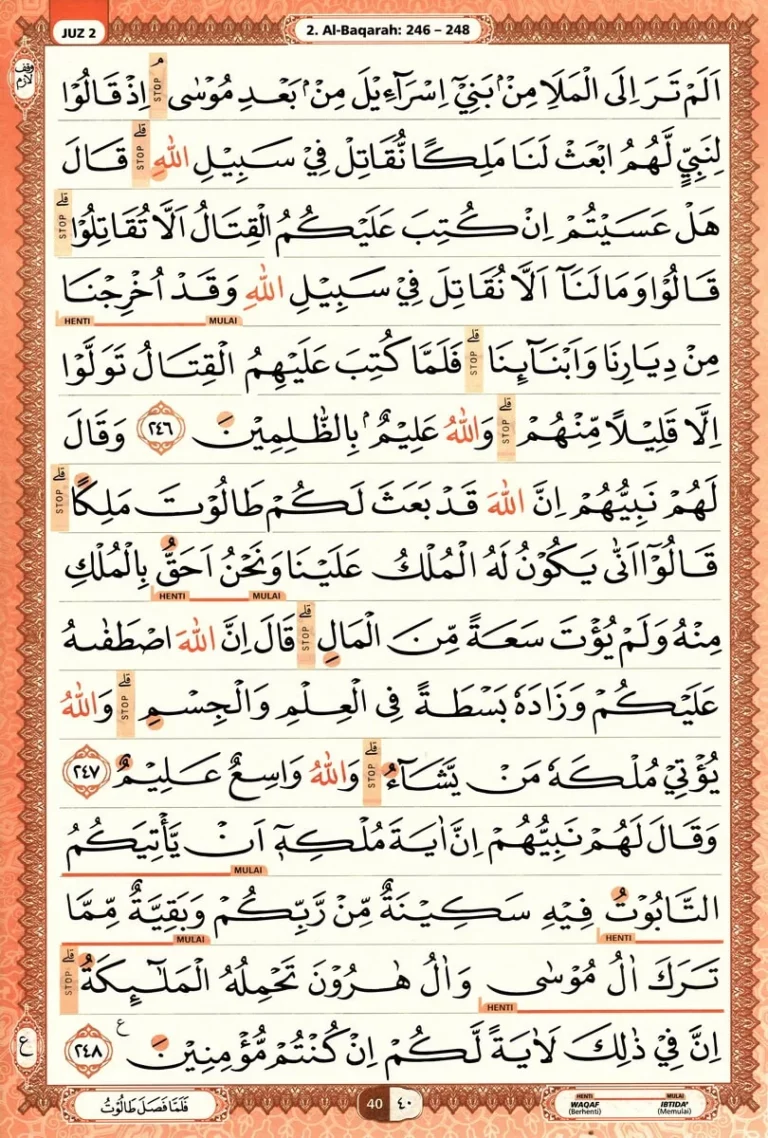 JUZ 2
2. Al-Baqarah: 246 – 248
وقف لازم
اَلَمْ تَرَ اِلَى الْمَلَاِ مِنْۢ بَنِيْٓ اِسْرَاۤءِيْلَ مِنْۢ بَعْدِ مُوْسٰى ۘ STOP اِذْ قَالُوْا
لِنَبِيٍّ لَّهُمُ ابْعَثْ لَنَا مَلِكًا نُّقَاتِلْ فِيْ سَبِيْلِ اللّٰهِ ۗ STOP قَالَ
هَلْ عَسَيْتُمْ اِنْ كُتِبَ عَلَيْكُمُ الْقِتَالُ اَلَّا تُقَاتِلُوْا ۗ STOP
قَالُوْا وَمَا لَنَآ اَلَّا نُقَاتِلَ فِيْ سَبِيْلِ اللّٰهِ وَقَدْ اُخْرِجْنَا
MULAI HENTI
مِنْ دِيَارِنَا وَاَبْنَاۤىِٕنَا ۗ STOP فَلَمَّا كُتِبَ عَلَيْهِمُ الْقِتَالُ تَوَلَّوْا
اِلَّا قَلِيْلًا مِّنْهُمْ ۗ STOP وَاللّٰهُ عَلِيْمٌۢ بِالظّٰلِمِيْنَ ٢٤٦ وَقَالَ
لَهُمْ نَبِيُّهُمْ اِنَّ اللّٰهَ قَدْ بَعَثَ لَكُمْ طَالُوْتَ مَلِكًا ۗ STOP
قَالُوْٓا اَنّٰى يَكُوْنُ لَهُ الْمُلْكُ عَلَيْنَا وَنَحْنُ اَحَقُّ بِالْمُلْكِ
MULAI HENTI
مِنْهُ وَلَمْ يُؤْتَ سَعَةً مِّنَ الْمَالِ ۗ STOP قَالَ اِنَّ اللّٰهَ اصْطَفٰىهُ
عَلَيْكُمْ وَزَادَهٗ بَسْطَةً فِى الْعِلْمِ وَالْجِسْمِ ۗ STOP وَاللّٰهُ
يُؤْتِيْ مُلْكَهٗ مَنْ يَّشَاۤءُ ۗ STOP وَاللّٰهُ وَاسِعٌ عَلِيْمٌ ٢٤٧
وَقَالَ لَهُمْ نَبِيُّهُمْ اِنَّ اٰيَةَ مُلْكِهٖٓ اَنْ يَّأْتِيَكُمُ
MULAI
التَّابُوْتُ فِيْهِ سَكِيْنَةٌ مِّنْ رَّبِّكُمْ وَبَقِيَّةٌ مِّمَّا
HENTI MULAI
تَرَكَ اٰلُ مُوْسٰى وَاٰلُ هٰرُوْنَ تَحْمِلُهُ الْمَلٰۤىِٕكَةُ ۗ STOP
HENTI
اِنَّ فِيْ ذٰلِكَ لَاٰيَةً لَّكُمْ اِنْ كُنْتُمْ مُّؤْمِنِيْنَ ع ٢٤٨
ع
فَلَمَّا فَصَلَ طَالُوْتُ
40 ٤٠
HENTI MULAI
WAQAF IBTIDA'
(Berhenti) (Memulai)